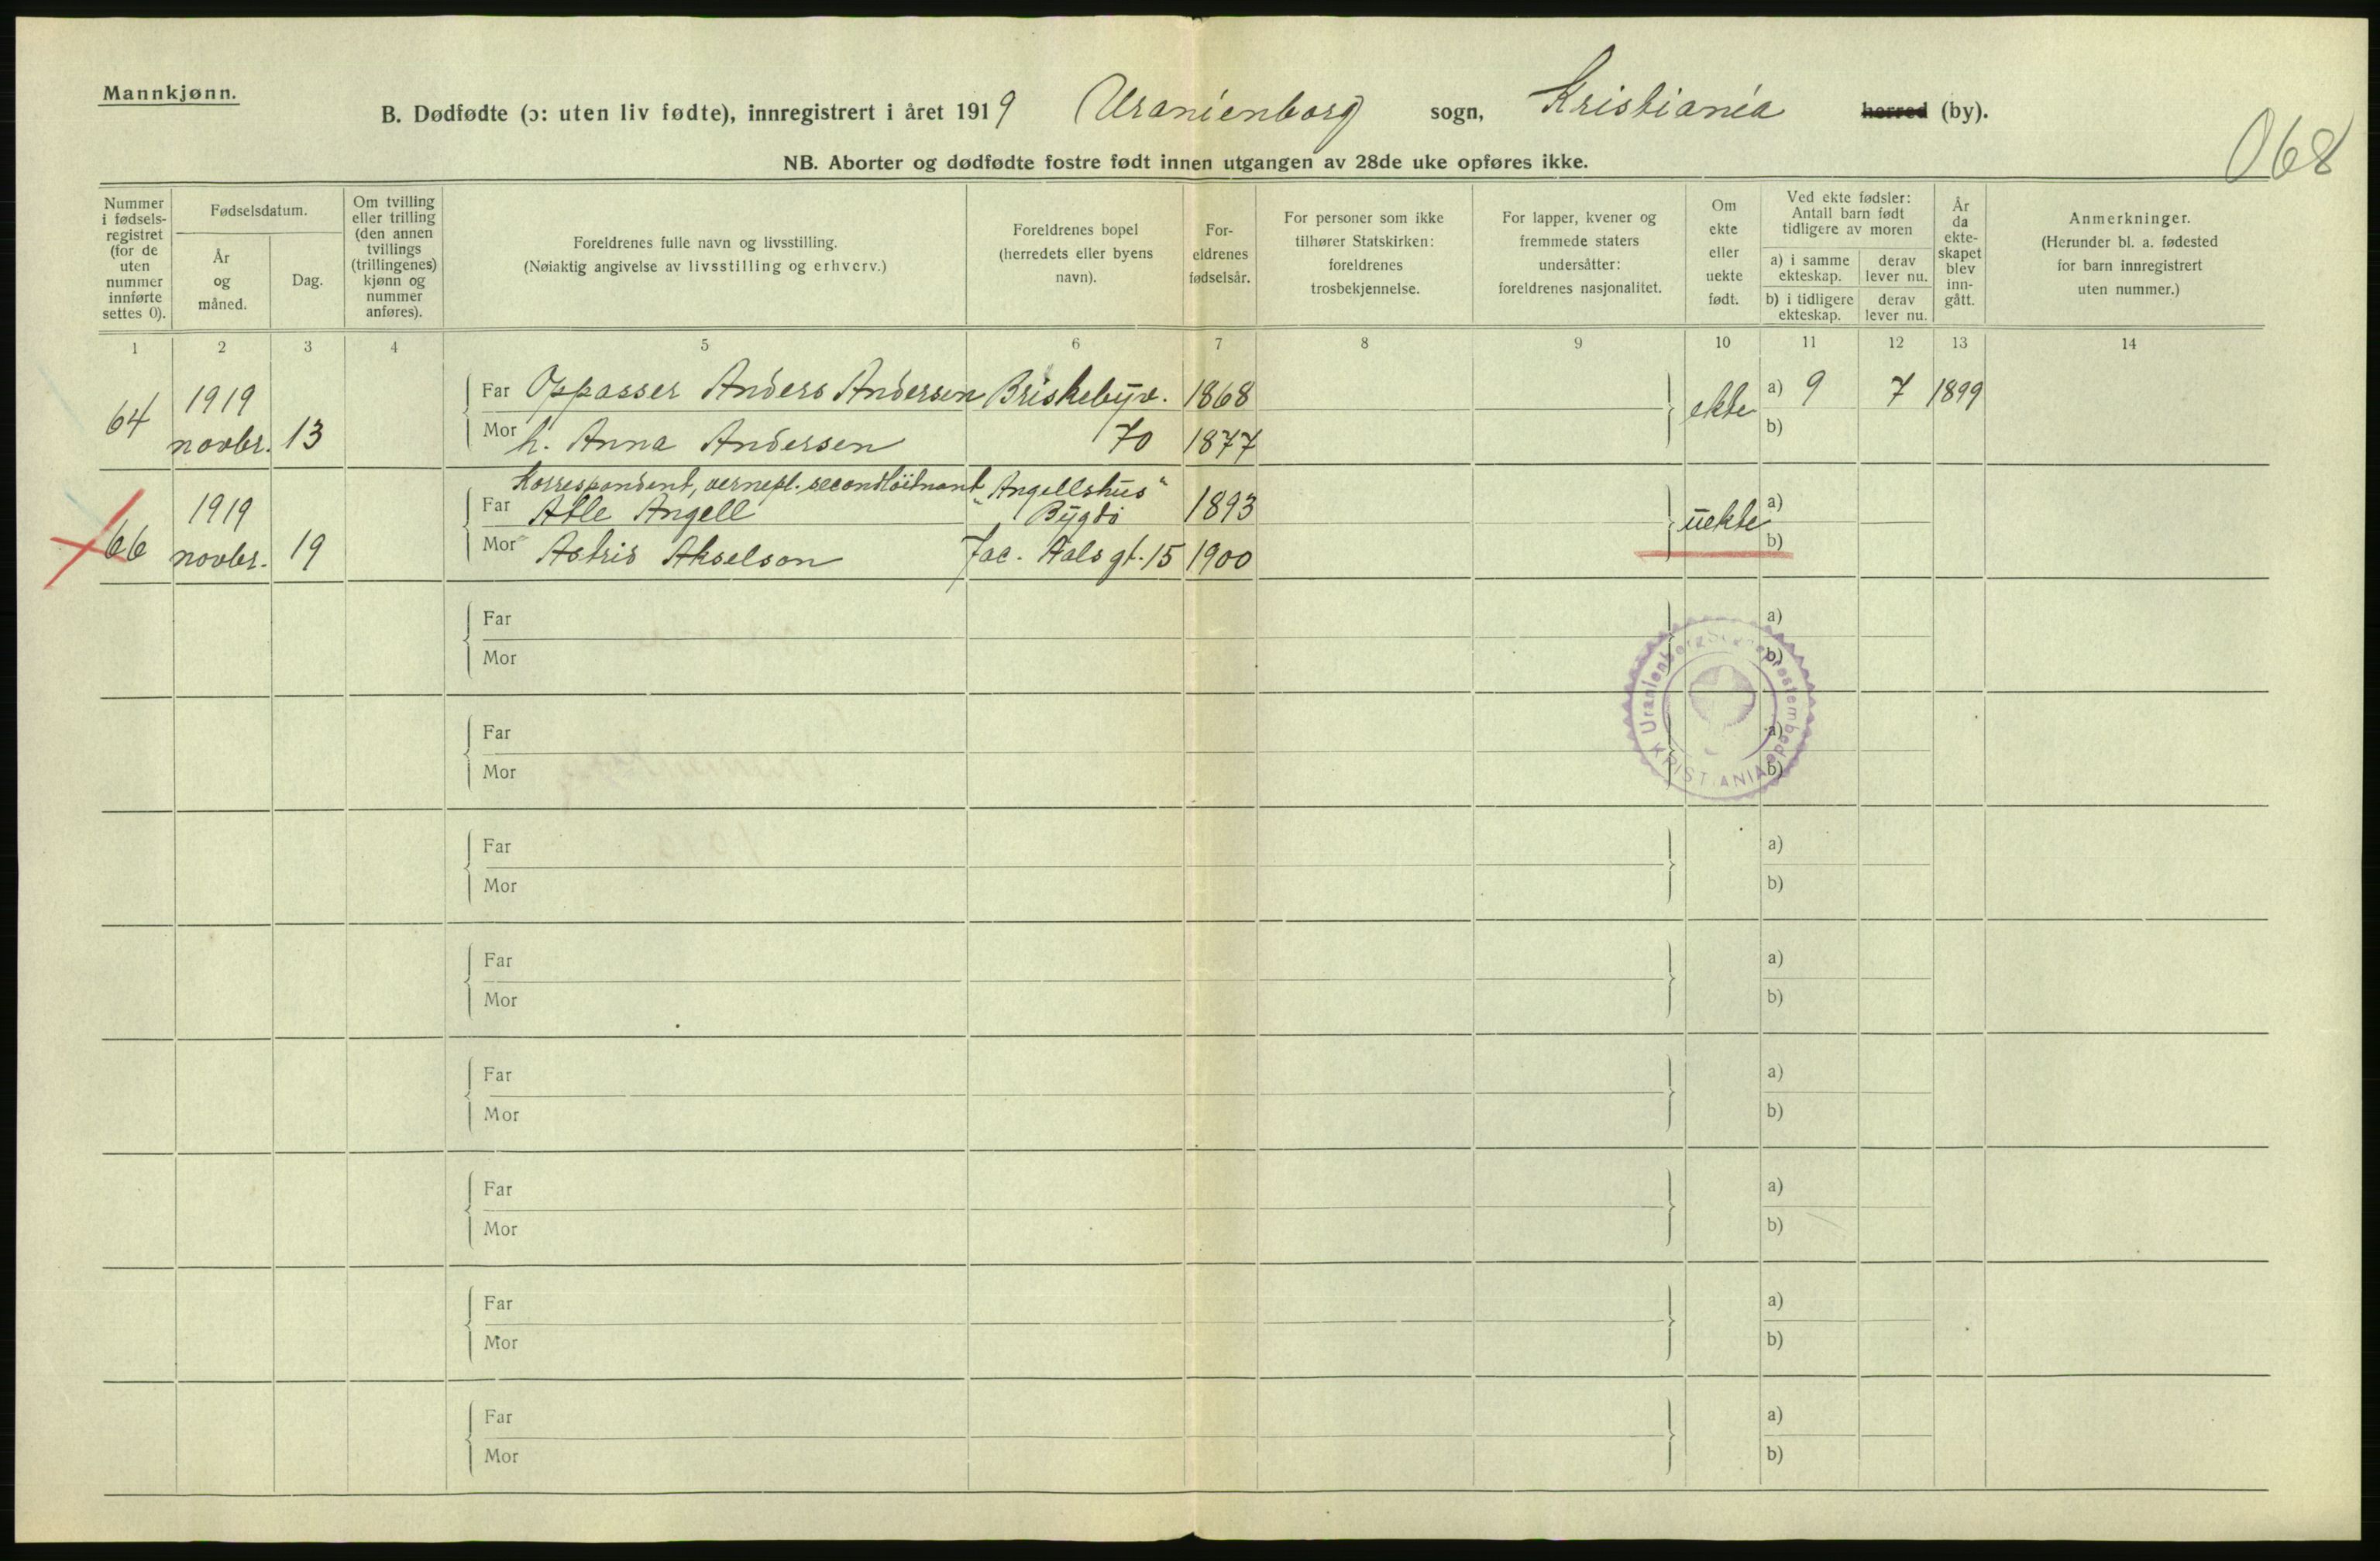 Mannkjønn.
B. Dødfødte (ɔ: uten liv fødte), innregistrert i året 1919 Uranienborg sogn, Kristiania herred (by).
068
NB. Aborter og dødfødte fostre født innen utgangen av 28de uke opføres ikke.
Nummer i fødsels-registret (for de uten nummer innførte settes 0).
Fødselsdatum.
År og måned.
Dag.
Om tvilling eller trilling (den annen tvillings (trillingenes) kjønn og nummer anføres).
Foreldrenes fulle navn og livsstilling.
(Nøiaktig angivelse av livsstilling og erhverv.)
Foreldrenes bopel (herredets eller byens navn).
For-eldrenes fødselsår.
For personer som ikke tilhører Statskirken: foreldrenes trosbekjennelse.
For lapper, kvener og fremmede staters undersåtter: foreldrenes nasjonalitet.
Om ekte eller uekte født.
Ved ekte fødsler: Antall barn født tidligere av moren
a) i samme ekteskap.
derav lever nu.
b) i tidligere ekteskap.
derav lever nu.
År da ekte-skapet blev inn-gått.
Anmerkninger.
(Herunder bl. a. fødested for barn innregistrert uten nummer.)
1 2 3 4 5 6 7 8 9 10 11 12 13 14
64 1919 novbr. 13
Far Oppasser Anders Andersen Briskebyv. 1868 ekte a) 9 7 1899
Mor h. Anna Andersen 70 1877 b)
66 1919 novbr. 19
Korrespondent, vernepl. secondlöitnant "Angellshus"
Far Atle Angell Bygdö 1893 uekte a)
Mor Astrid Akselson Jac. Aals gt. 15 1900 b)
Far a)
Mor b)
Uranienborg KRISTIANIA
Far a)
Mor b)
Far a)
Mor b)
Far a)
Mor b)
Far a)
Mor b)
Far a)
Mor b)
Far a)
Mor b)
Far a)
Mor b)